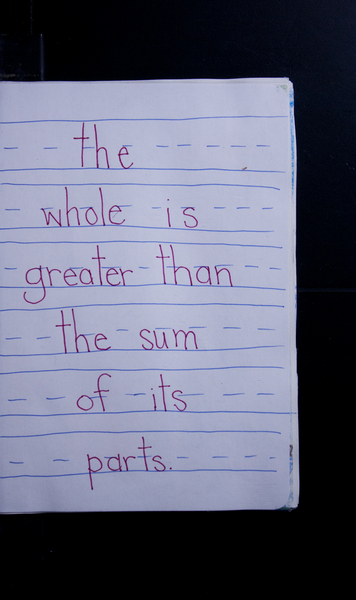 the
whole is
greater than
the sum
of its
parts.